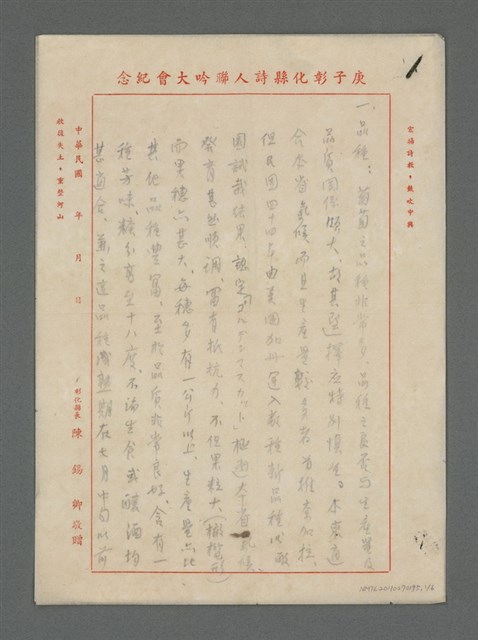 庚子彰化縣詩人聯吟大會紀念
宏揚詩教，鼓吹中興
一、品種：葡萄之品種非常多，品種之良否與生產量及
品質關係頗大，故其選擇應特別慎重。本來適
合本省氣候而且生產量較多者為推查加拉，
但民國四十四年由美國加州運入数種新品種以
園試栽結果，認定「ゴルデンマスカット」極適本省氣候，
發育甚為順調，富有抵抗力，不但果粒大（橄欖形
而果穗亦甚大，每穗多有一公斤以上，生產量亦比
其他品種豐富，至於品質非常良好，含有一
種芳味，糖分高至十八度，不論生食或釀酒均
甚適合，兼之這品種成熟期在七月中旬以前
中華民國　年　月　日
彰化縣長　陳錫卿敬贈
收復失土，重整河山